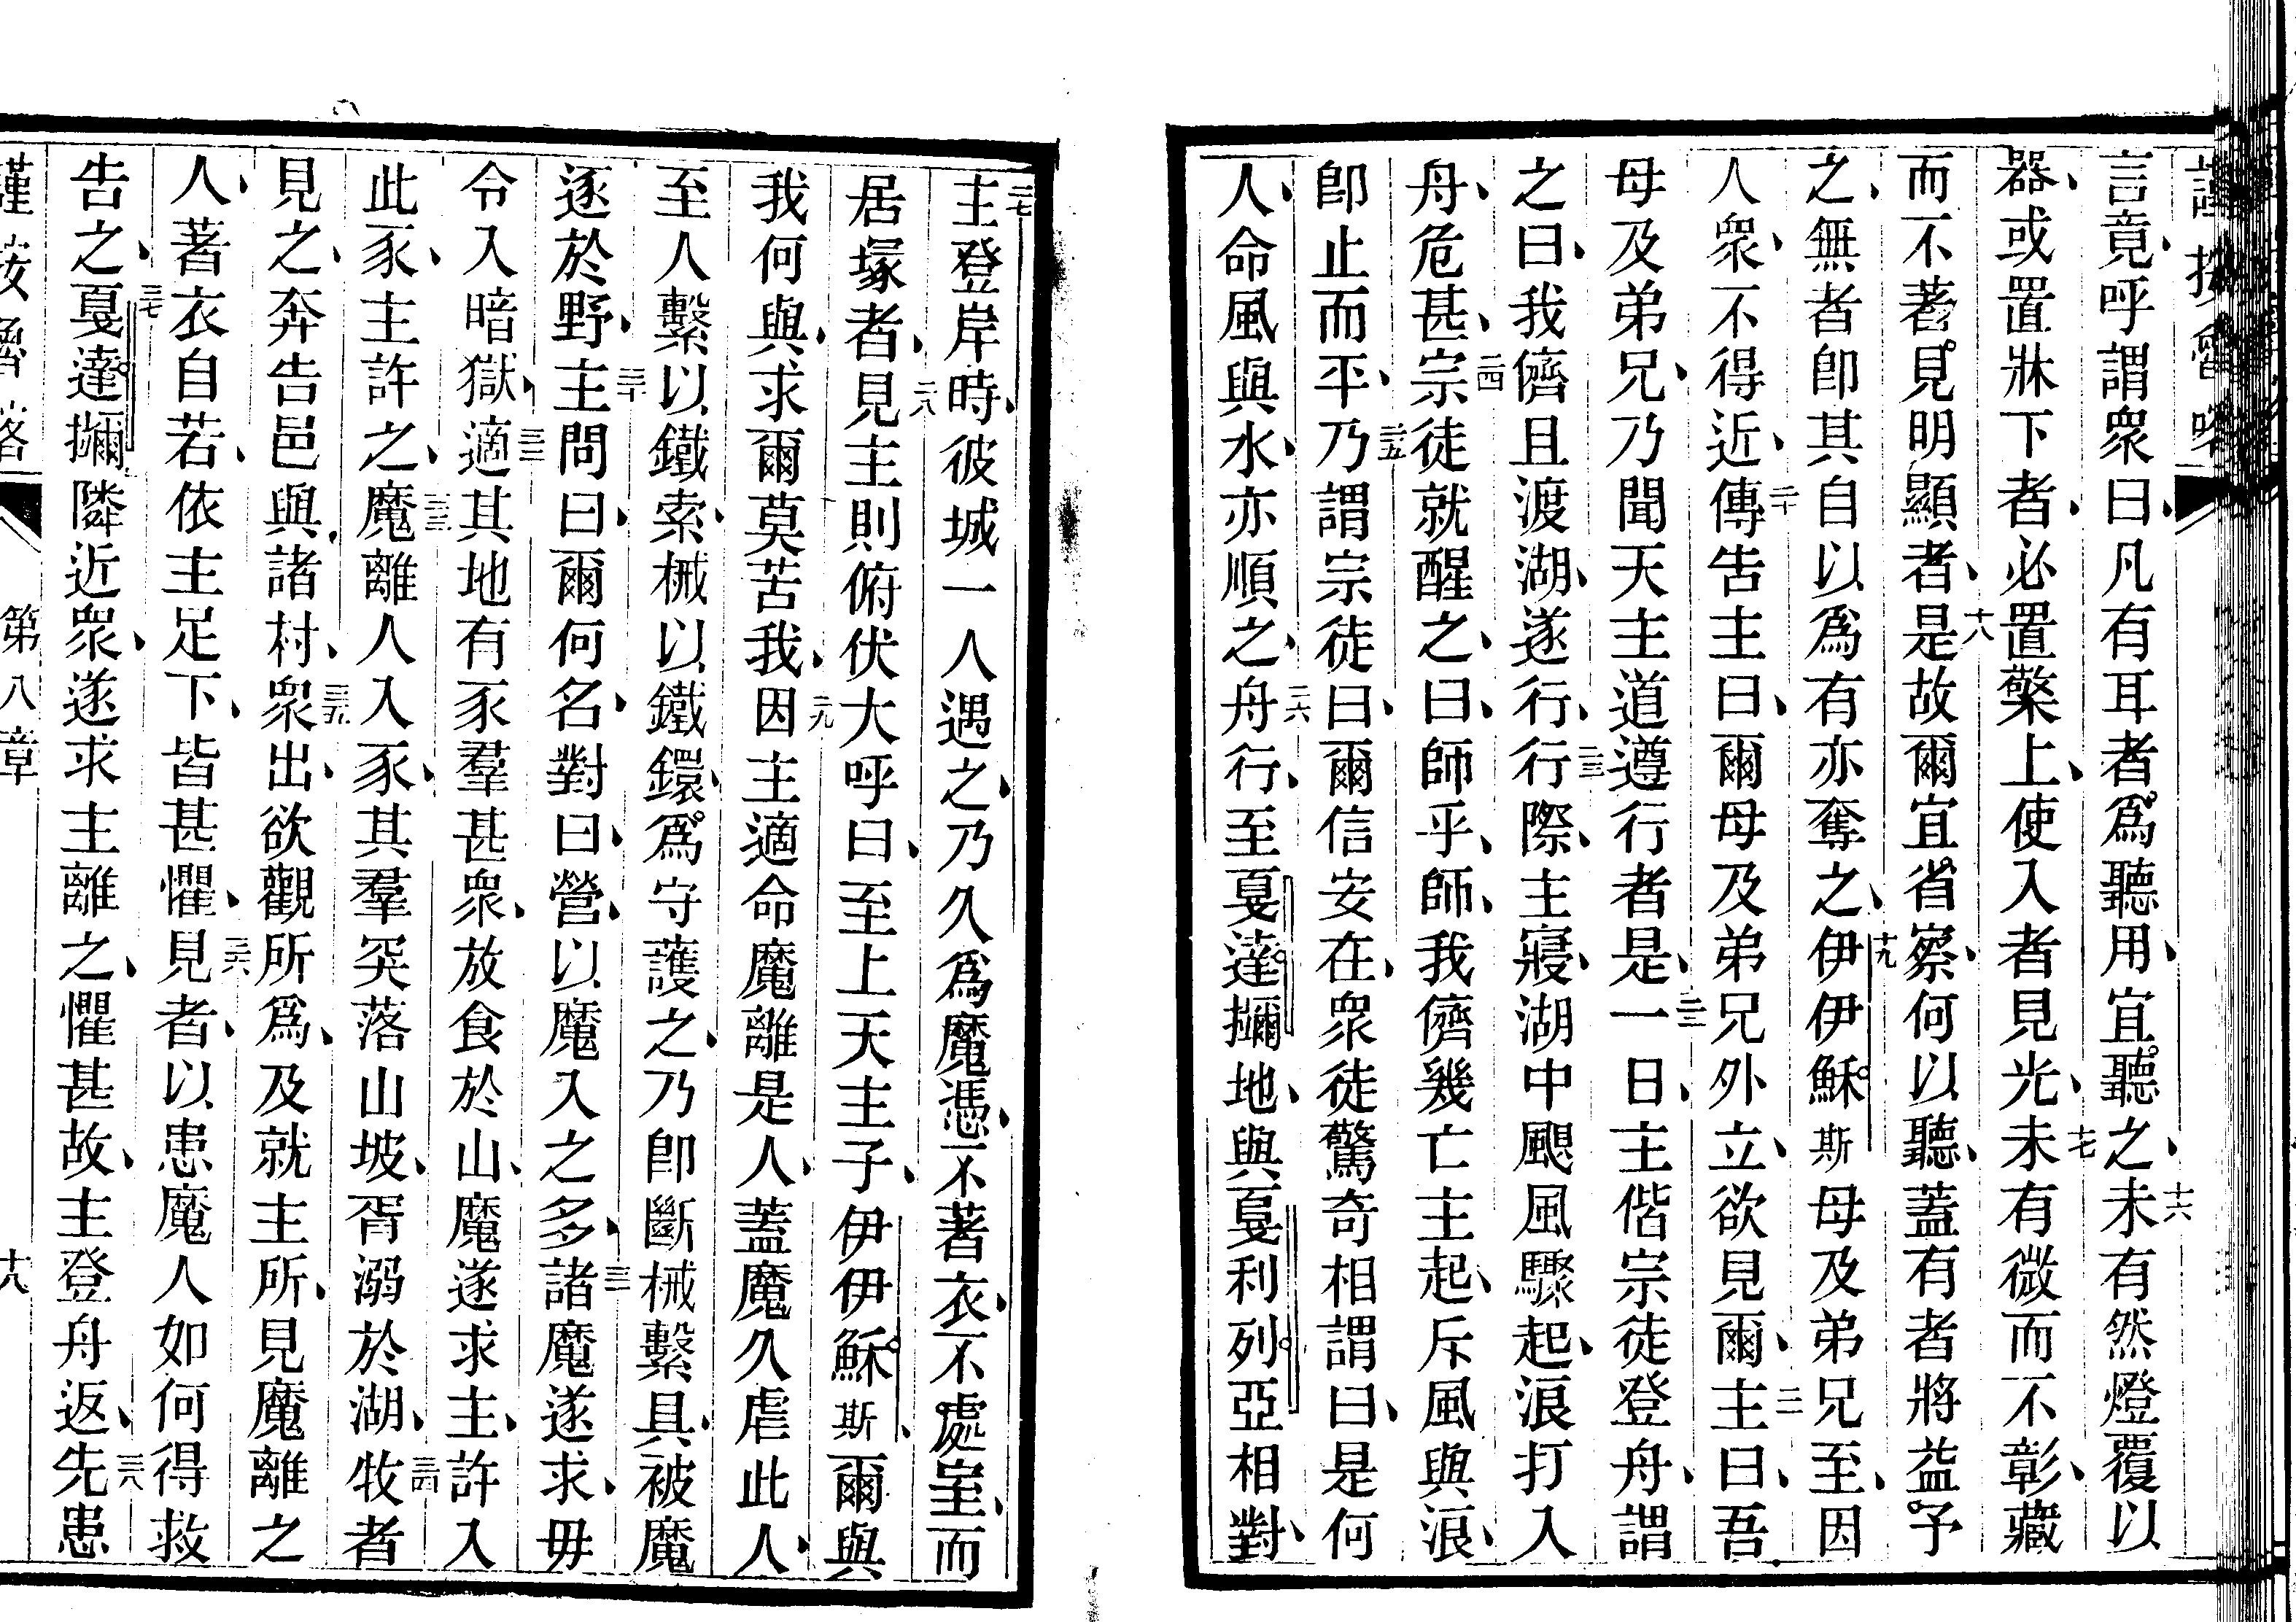 言竟呼謂衆曰凡有耳者爲聽用宜聽之十六未有然燈覆以
器或置牀下者必置檠上使入者見光十七未有微而不彰藏
而不著見明顯者十八是故爾宜省察何以聽蓋有者將益予
之無者卽其自以爲有亦奪之十九伊伊穌斯母及弟兄至因
人衆不得近二十傳告主曰爾母及弟兄外立欲見爾二一主曰吾
母及弟兄乃聞天主道遵行者是二二一日主偕宗徒登舟謂
之曰我儕且渡湖遂行二三行際主寢湖中颶風驟起浪打入
舟危甚二四宗徒就醒之曰師乎師我儕幾亡主起斥風與浪
卽止而平二五乃謂宗徒曰爾信安在衆徒驚奇相謂曰是何
人命風與水亦順之二六舟行至戛達擟地與戛利列亞相對
二七主登岸時彼城一人遇之乃久爲魔憑不著衣不處室而
居塚者二八見主則俯伏大呼曰至上天主子伊伊穌斯爾與
我何與求爾莫苦我二九因主適命魔離是人蓋魔久虐此人
至人繫以鐵索械以鐵鐶爲守護之乃卽斷械繫具被魔
逐於野三十主問曰爾何名對曰營以魔入之多三一諸魔遂求毋
令入暗獄三二適其地有豕羣甚衆放食於山魔遂求主許入
此豕主許之三三魔離人入豕其羣突落山坡胥溺於湖三四牧者
見之奔告邑與諸村三五衆出欲觀所爲及就主所見魔離之
人著衣自若依主足下皆甚懼三六見者以患魔人如何得救
告之三七戛達擟隣近衆遂求主離之懼甚故主登舟返三八先患
第八章
十八